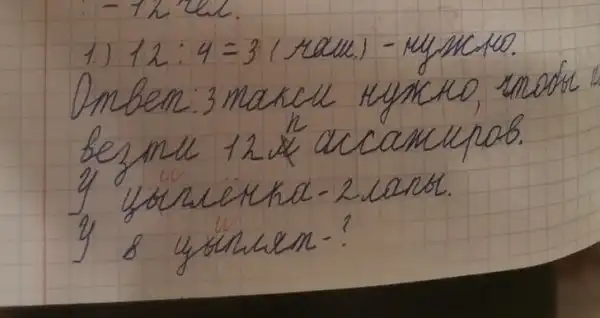 - 12 чел.
1) 12 : 4 = 3 (маш.) - нужно.
Ответ: 3 такси нужно, чтобы
везти 12 пассажиров.
У цыплёнка - 2 лапы.
У 8 цыплят - ?